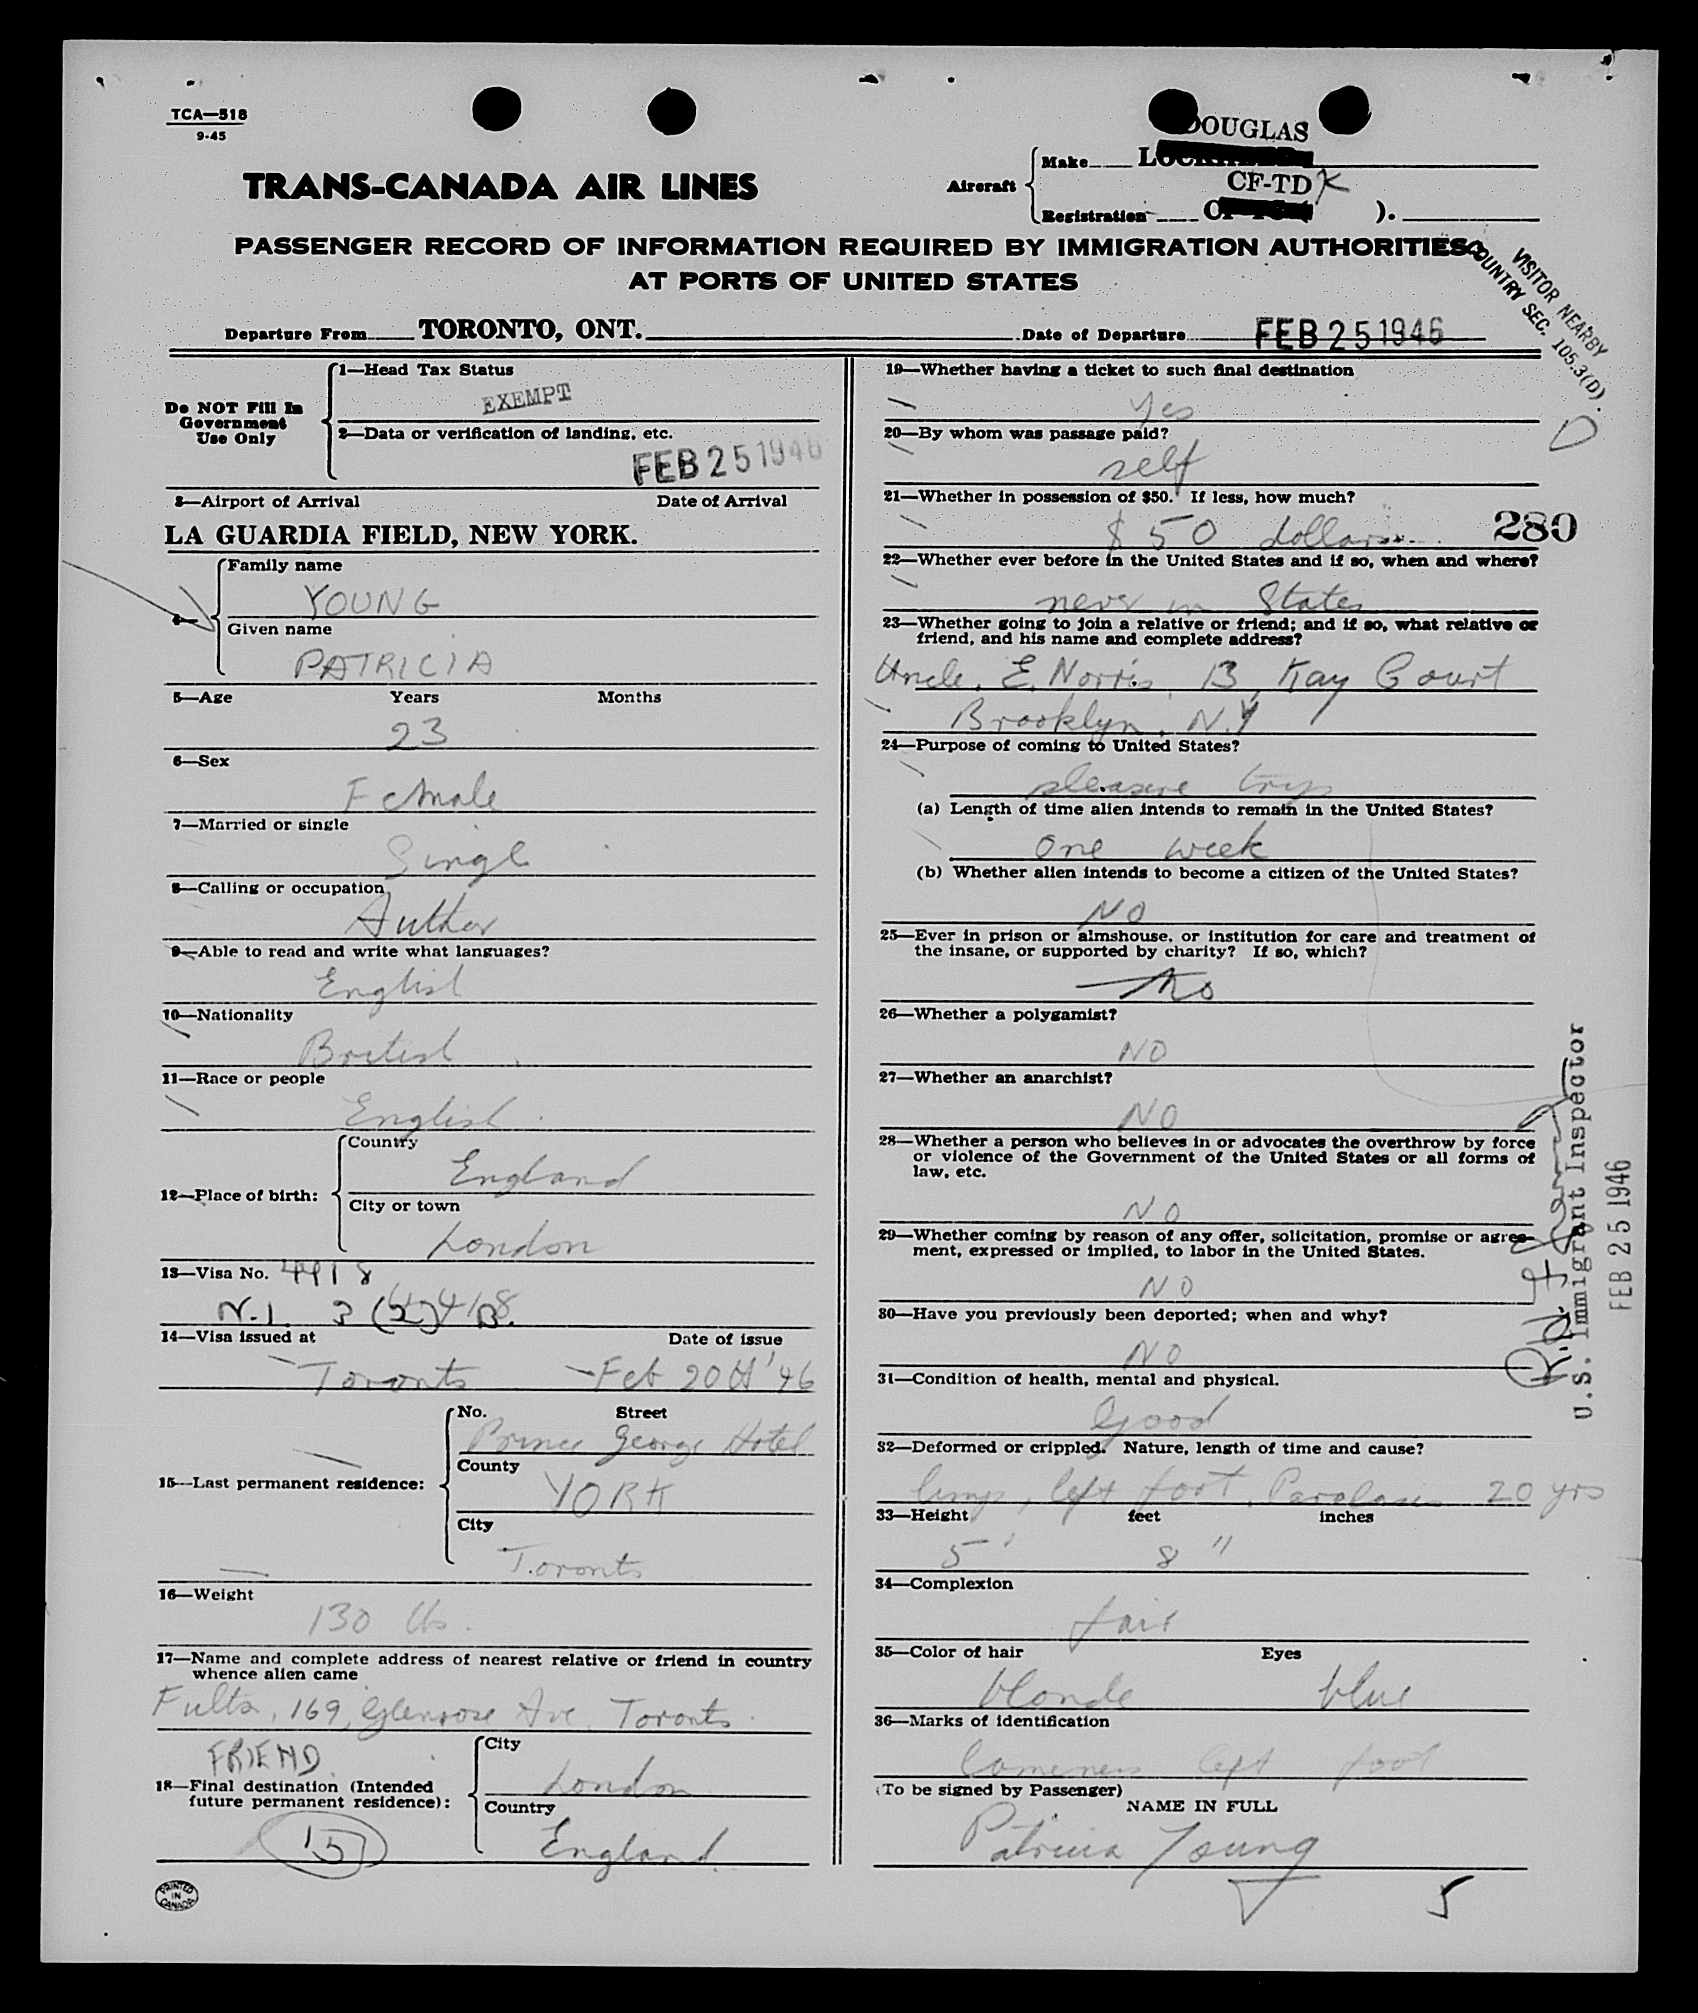 TCA—518
9-45
TRANS-CANADA AIR LINES
DOUGLAS
Aircraft
Make
CF-TDK
Registration
).
PASSENGER RECORD OF INFORMATION REQUIRED BY IMMIGRATION AUTHORITIES
AT PORTS OF UNITED STATES
VISITOR NEARBY
COUNTRY SEC. 105.3(D).
Departure From TORONTO, ONT. Date of Departure FEB 25 1946
Do NOT Fill In
Government
Use Only
1—Head Tax Status
EXEMPT
2—Data or verification of landing, etc.
FEB 25 1946
3—Airport of Arrival Date of Arrival
LA GUARDIA FIELD, NEW YORK.
4—
Family name
YOUNG
Given name
PATRICIA
5—Age Years Months
23
6—Sex
Female
7—Married or single
Single
8—Calling or occupation
Author
9—Able to read and write what languages?
English
10—Nationality
British
11—Race or people
English
12—Place of birth:
Country
England
City or town
London
13—Visa No. 4418
N.I. 3 (2) B.
14—Visa issued at Date of issue
Toronto Feb 20th '46
15—Last permanent residence:
No. Street
Prince George Hotel
County
YORK
City
Toronto
16—Weight
130 lbs.
17—Name and complete address of nearest relative or friend in country
whence alien came
Fults, 169, Glenrose Ave. Toronto
FRIEND
18—Final destination (Intended
future permanent residence):
City
London
Country
England
15
PRINTED
IN
CANADA
19—Whether having a ticket to such final destination
Yes
20—By whom was passage paid?
self
21—Whether in possession of $50. If less, how much?
$50 dollars
280
22—Whether ever before in the United States and if so, when and where?
never in States
23—Whether going to join a relative or friend; and if so, what relative or
friend, and his name and complete address?
Uncle, E. Norris, 13, Kay Court
Brooklyn, N.Y
24—Purpose of coming to United States?
pleasure trip
(a) Length of time alien intends to remain in the United States?
One week
(b) Whether alien intends to become a citizen of the United States?
NO
25—Ever in prison or almshouse, or institution for care and treatment of
the insane, or supported by charity? If so, which?
No
26—Whether a polygamist?
NO
27—Whether an anarchist?
NO
28—Whether a person who believes in or advocates the overthrow by force
or violence of the Government of the United States or all forms of
law, etc.
NO
29—Whether coming by reason of any offer, solicitation, promise or agree-
ment, expressed or implied, to labor in the United States.
NO
30—Have you previously been deported; when and why?
NO
31—Condition of health, mental and physical.
Good
32—Deformed or crippled. Nature, length of time and cause?
limp, left foot, 20 yrs
33—Height feet inches
5' 8"
34—Complexion
fair
35—Color of hair Eyes
blonde blue
36—Marks of identification
Lameness left foot
(To be signed by Passenger)
NAME IN FULL
Patricia Young
5
U.S. Immigrant Inspector
FEB 25 1946